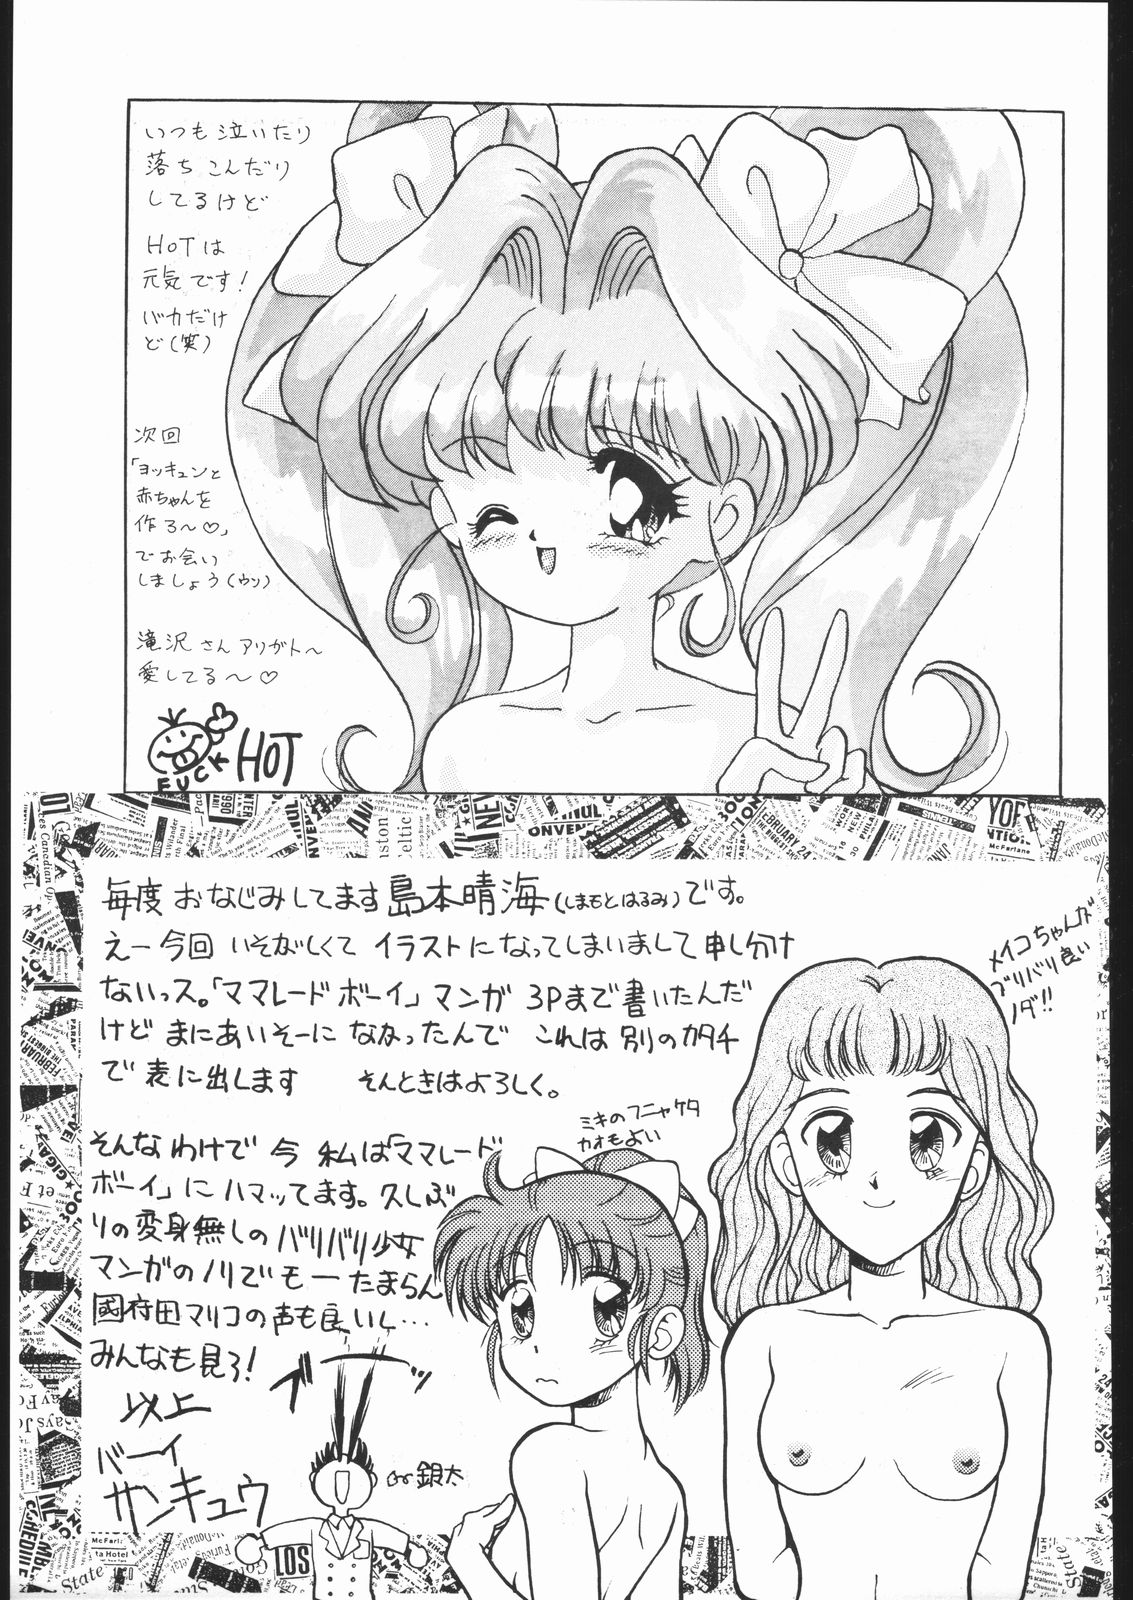 いつも泣いたり
落ちこんだり
してるけど
HOTは
元気です!
バカだけ
ど(笑)
次回
「ヨッキュンと
赤ちゃんを
作ろ〜♡」
でお会い
しましょう(ウソ)
滝沢さんアリガト〜
愛してる〜♡
FUCK HOT
毎度おなじみしてます島本晴海(しまもとはるみ)です。
えー今回いそがしくてイラストになってしまいまして申し分け
ないっス。「ママレードボーイ」マンガ 3Pまで書いたんだ
けどまにあいそーになかったんで これは別のカタチ
で表に出します そんときはよろしく。
そんなわけで今私は「ママレード
ボーイ」にハマッてます。久しぶ
りの変身無しのバリバリ少女
マンガのノリでモーたまらん
國府田マリコの声も良いし…
みんなも見ろ!
以上
バーイ
サンキュウ
ブーッ
銀太
ミキのフニャケタ
カオもよい
メイコちゃんが
ブリバリ良い
ノダ!!